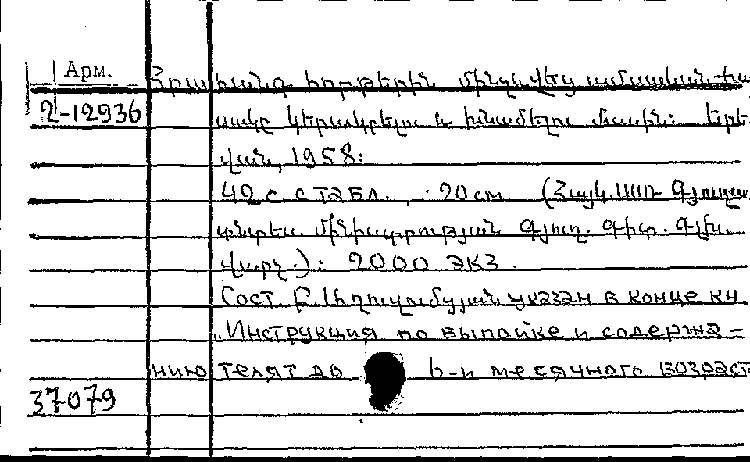 Арм.
Հրահանգ հորթերին մինչև վեց ամսական հա
2-12936
սակը կերակրելու և խնամելու մասին: Երե
վան, 1958:
42 с с табл., 20 см (Հայկ. ՍՍՌ Գյուղա
տնտես մինիստրության Գյուղ. գիտ. գլխ.
վարչ.): 2000 экз.
Сост. указан в конце кн
"Инструкция по выпойке и содержа-
нию телят до 6-и месячного возраст
37079